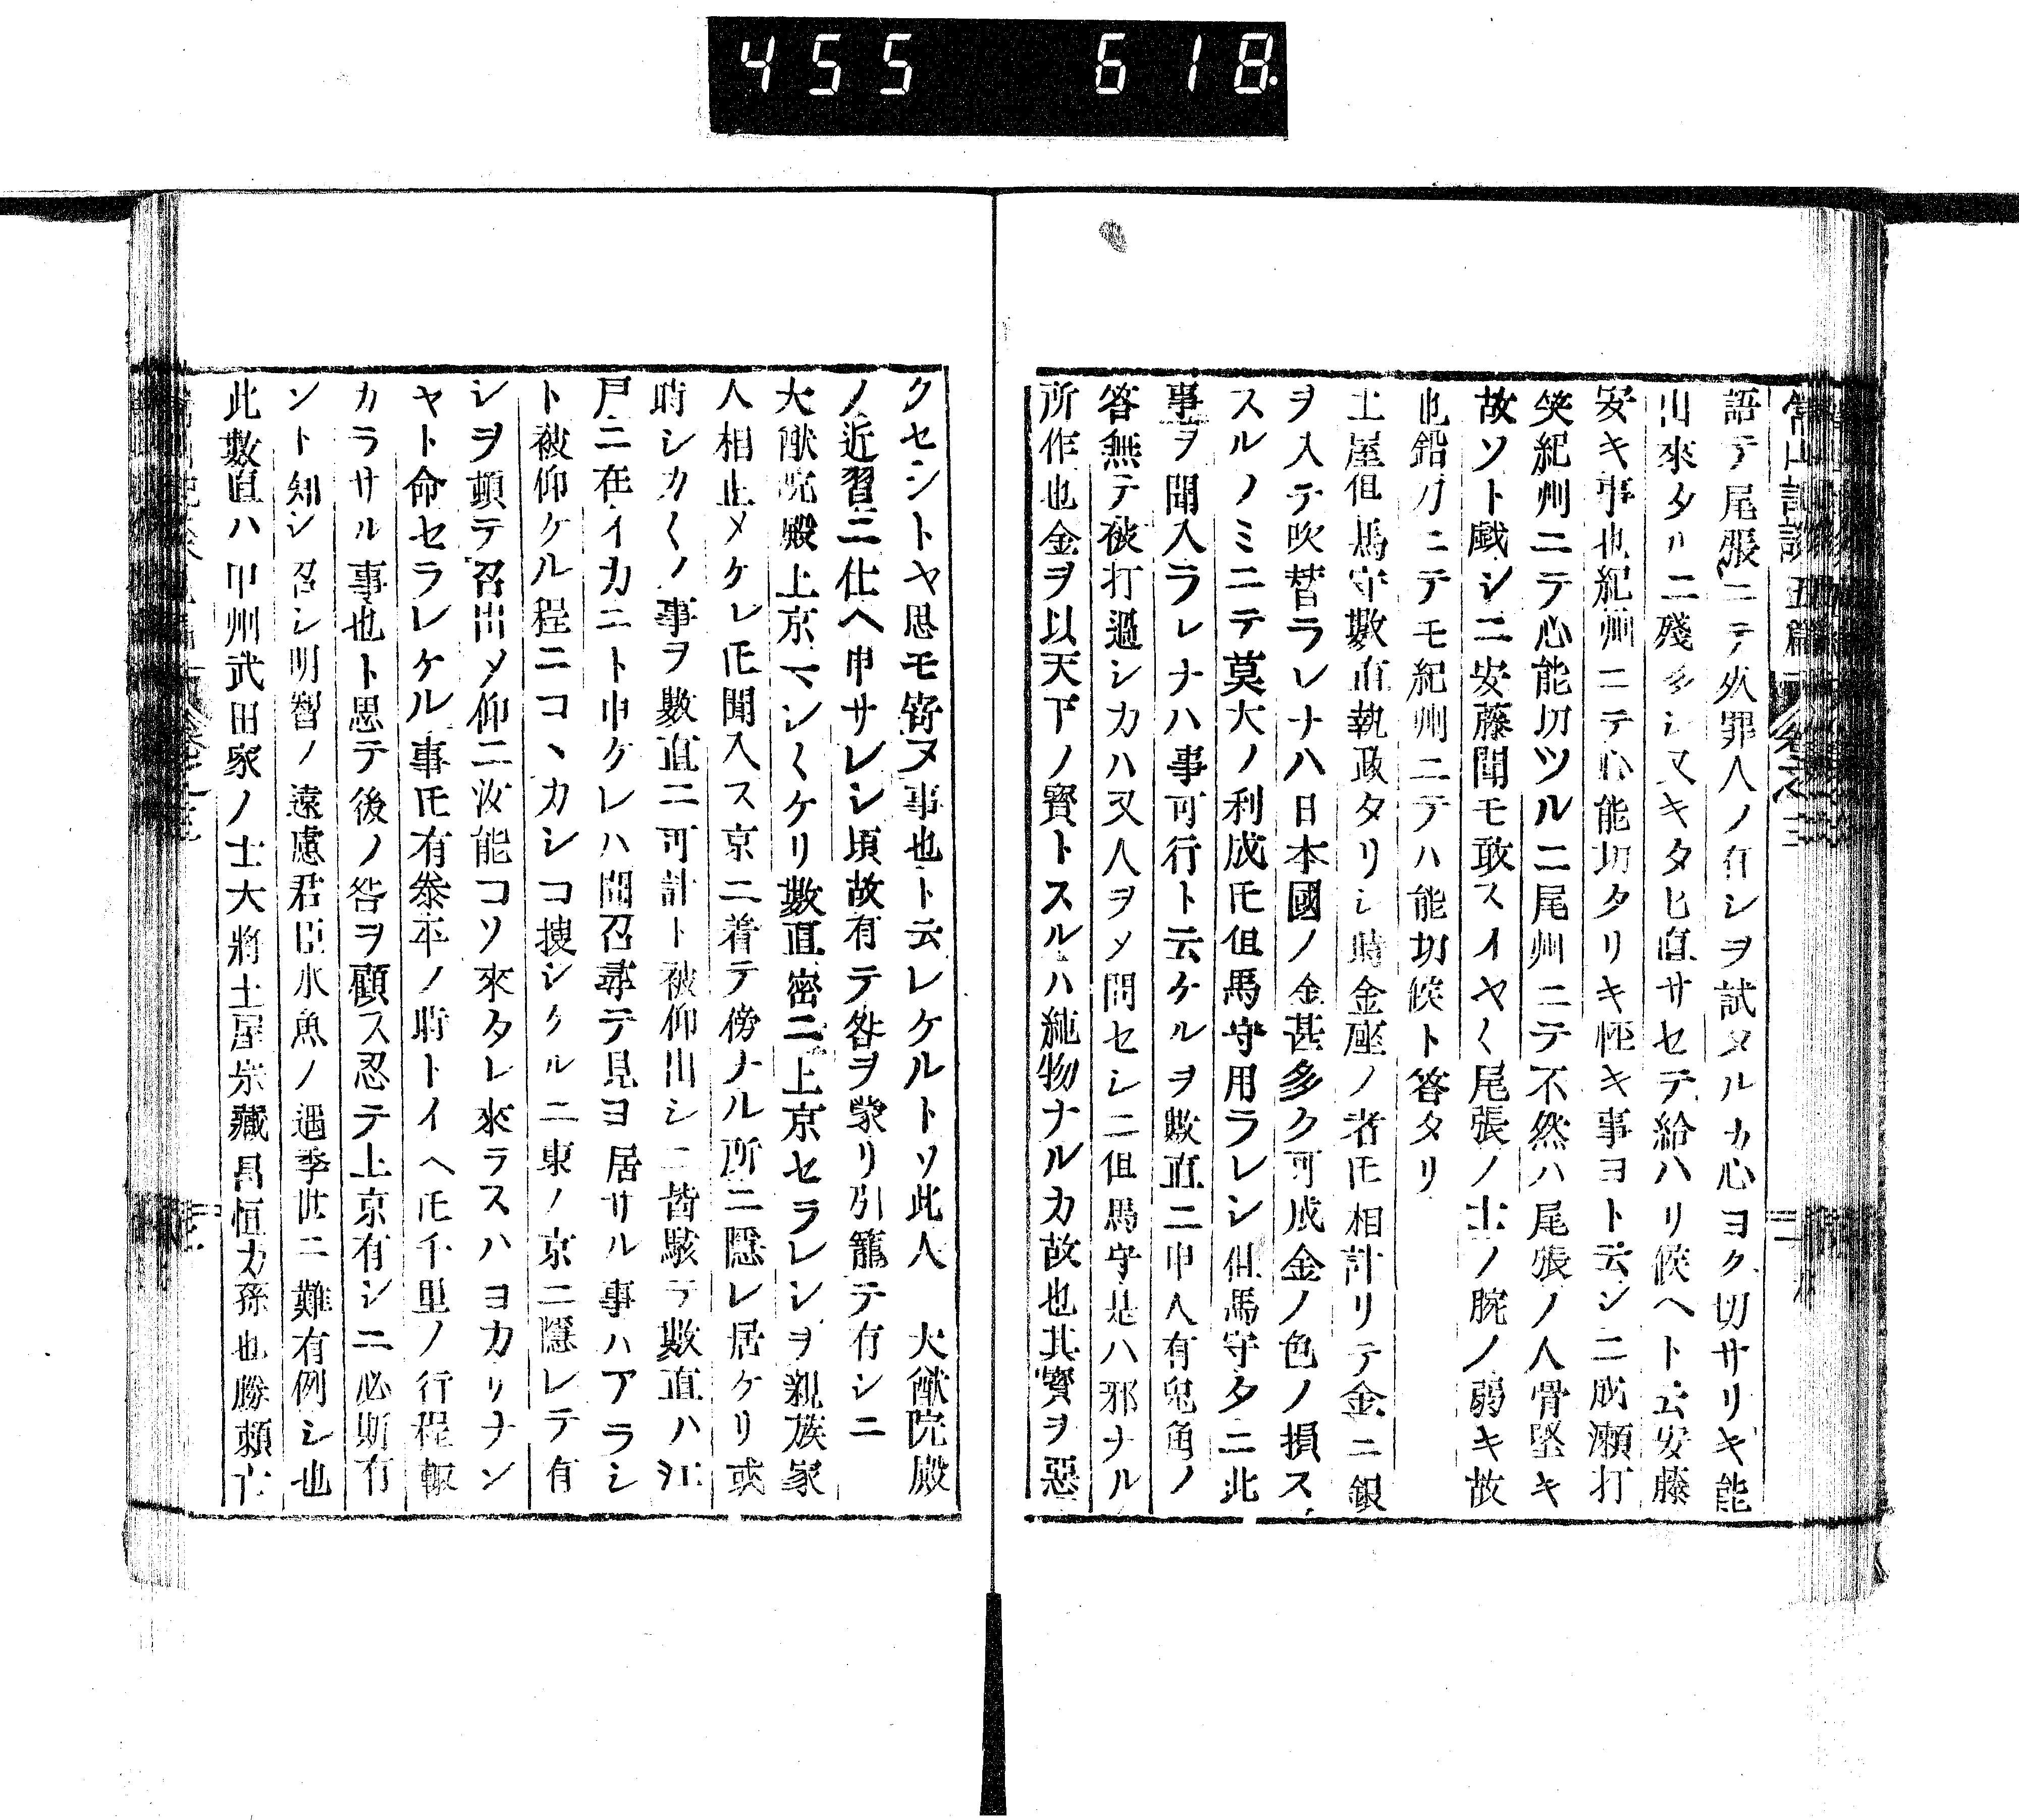 455 618
語テ尾張ニテ死罪人ノ有シヲ試タルカ心ヨク切サリキ能
出來タルニ殘多シ又キタヒ直サセテ給ハリ候ヘト云安藤
安キ事也紀州ニテ心能切タリキ恠キ事ヨト云シニ成瀬打
笑紀州ニテ心能切ツルニ尾州ニテ不然ハ尾張ノ人骨堅キ
故ソト戯シニ安藤聞モ敢スイヤ〱尾張ノ士ノ腕ノ弱キ故
也鉛刀ニテモ紀州ニテハ能切候ト答タリ
土屋但馬守數直執政タリシ時金座ノ者𪜈相計リテ金ニ銀
ヲ入テ吹替ラレナハ日本國ノ金甚多ク可成金ノ色ノ損ス
スルノミニテ莫大ノ利成𪜈但馬守用ラレシ但馬守タニ此
事ヲ聞入ラレナハ事可行ト云ケルヲ數直ニ申人有兎角ノ
答無テ被打過シカハ又人ヲメ問セシニ但馬守是ハ邪ナル
所作也金ヲ以天下ノ寳トスルハ純物ナルカ故也其寳ヲ惡
クセシトヤ思モ寄ヌ事也ト云レケルトソ此人 大猷院殿
ノ近習ニ仕ヘ申サレシ頃故有テ咎ヲ蒙リ引籠テ有シニ
大猷院殿上京マシ〱ケリ數直密ニ上京セラレシヲ親族家
人相止メケレ𪜈聞入ス京ニ着テ傍ナル所ニ隱レ居ケリ或
時シカ〱ノ事ヲ數直ニ可計ト被仰出シニ皆駭テ數直ハ江
戸ニ在イカニト申ケレハ聞召尋テ見ヨ居サル事ハアラシ
ト被仰ケル程ニコヽカシコ捜シケルニ東ノ京ニ隱レテ有
シヲ頓テ召出メ仰ニ汝能コソ來タレ來ラスハヨカリナン
ヤト命セラレケル事𪜈有泰平ノ時トイヘ𪜈千里ノ行程輙
カラサル事也ト思テ後ノ咎ヲ顧ス忍テ上京有シニ必斯有
ント知シ召シ明智ノ遠慮君臣水魚ノ遇季世ニ難有例シ也
此數直ハ甲州武田家ノ士大將土屋宗藏昌恒カ孫也勝頼亡